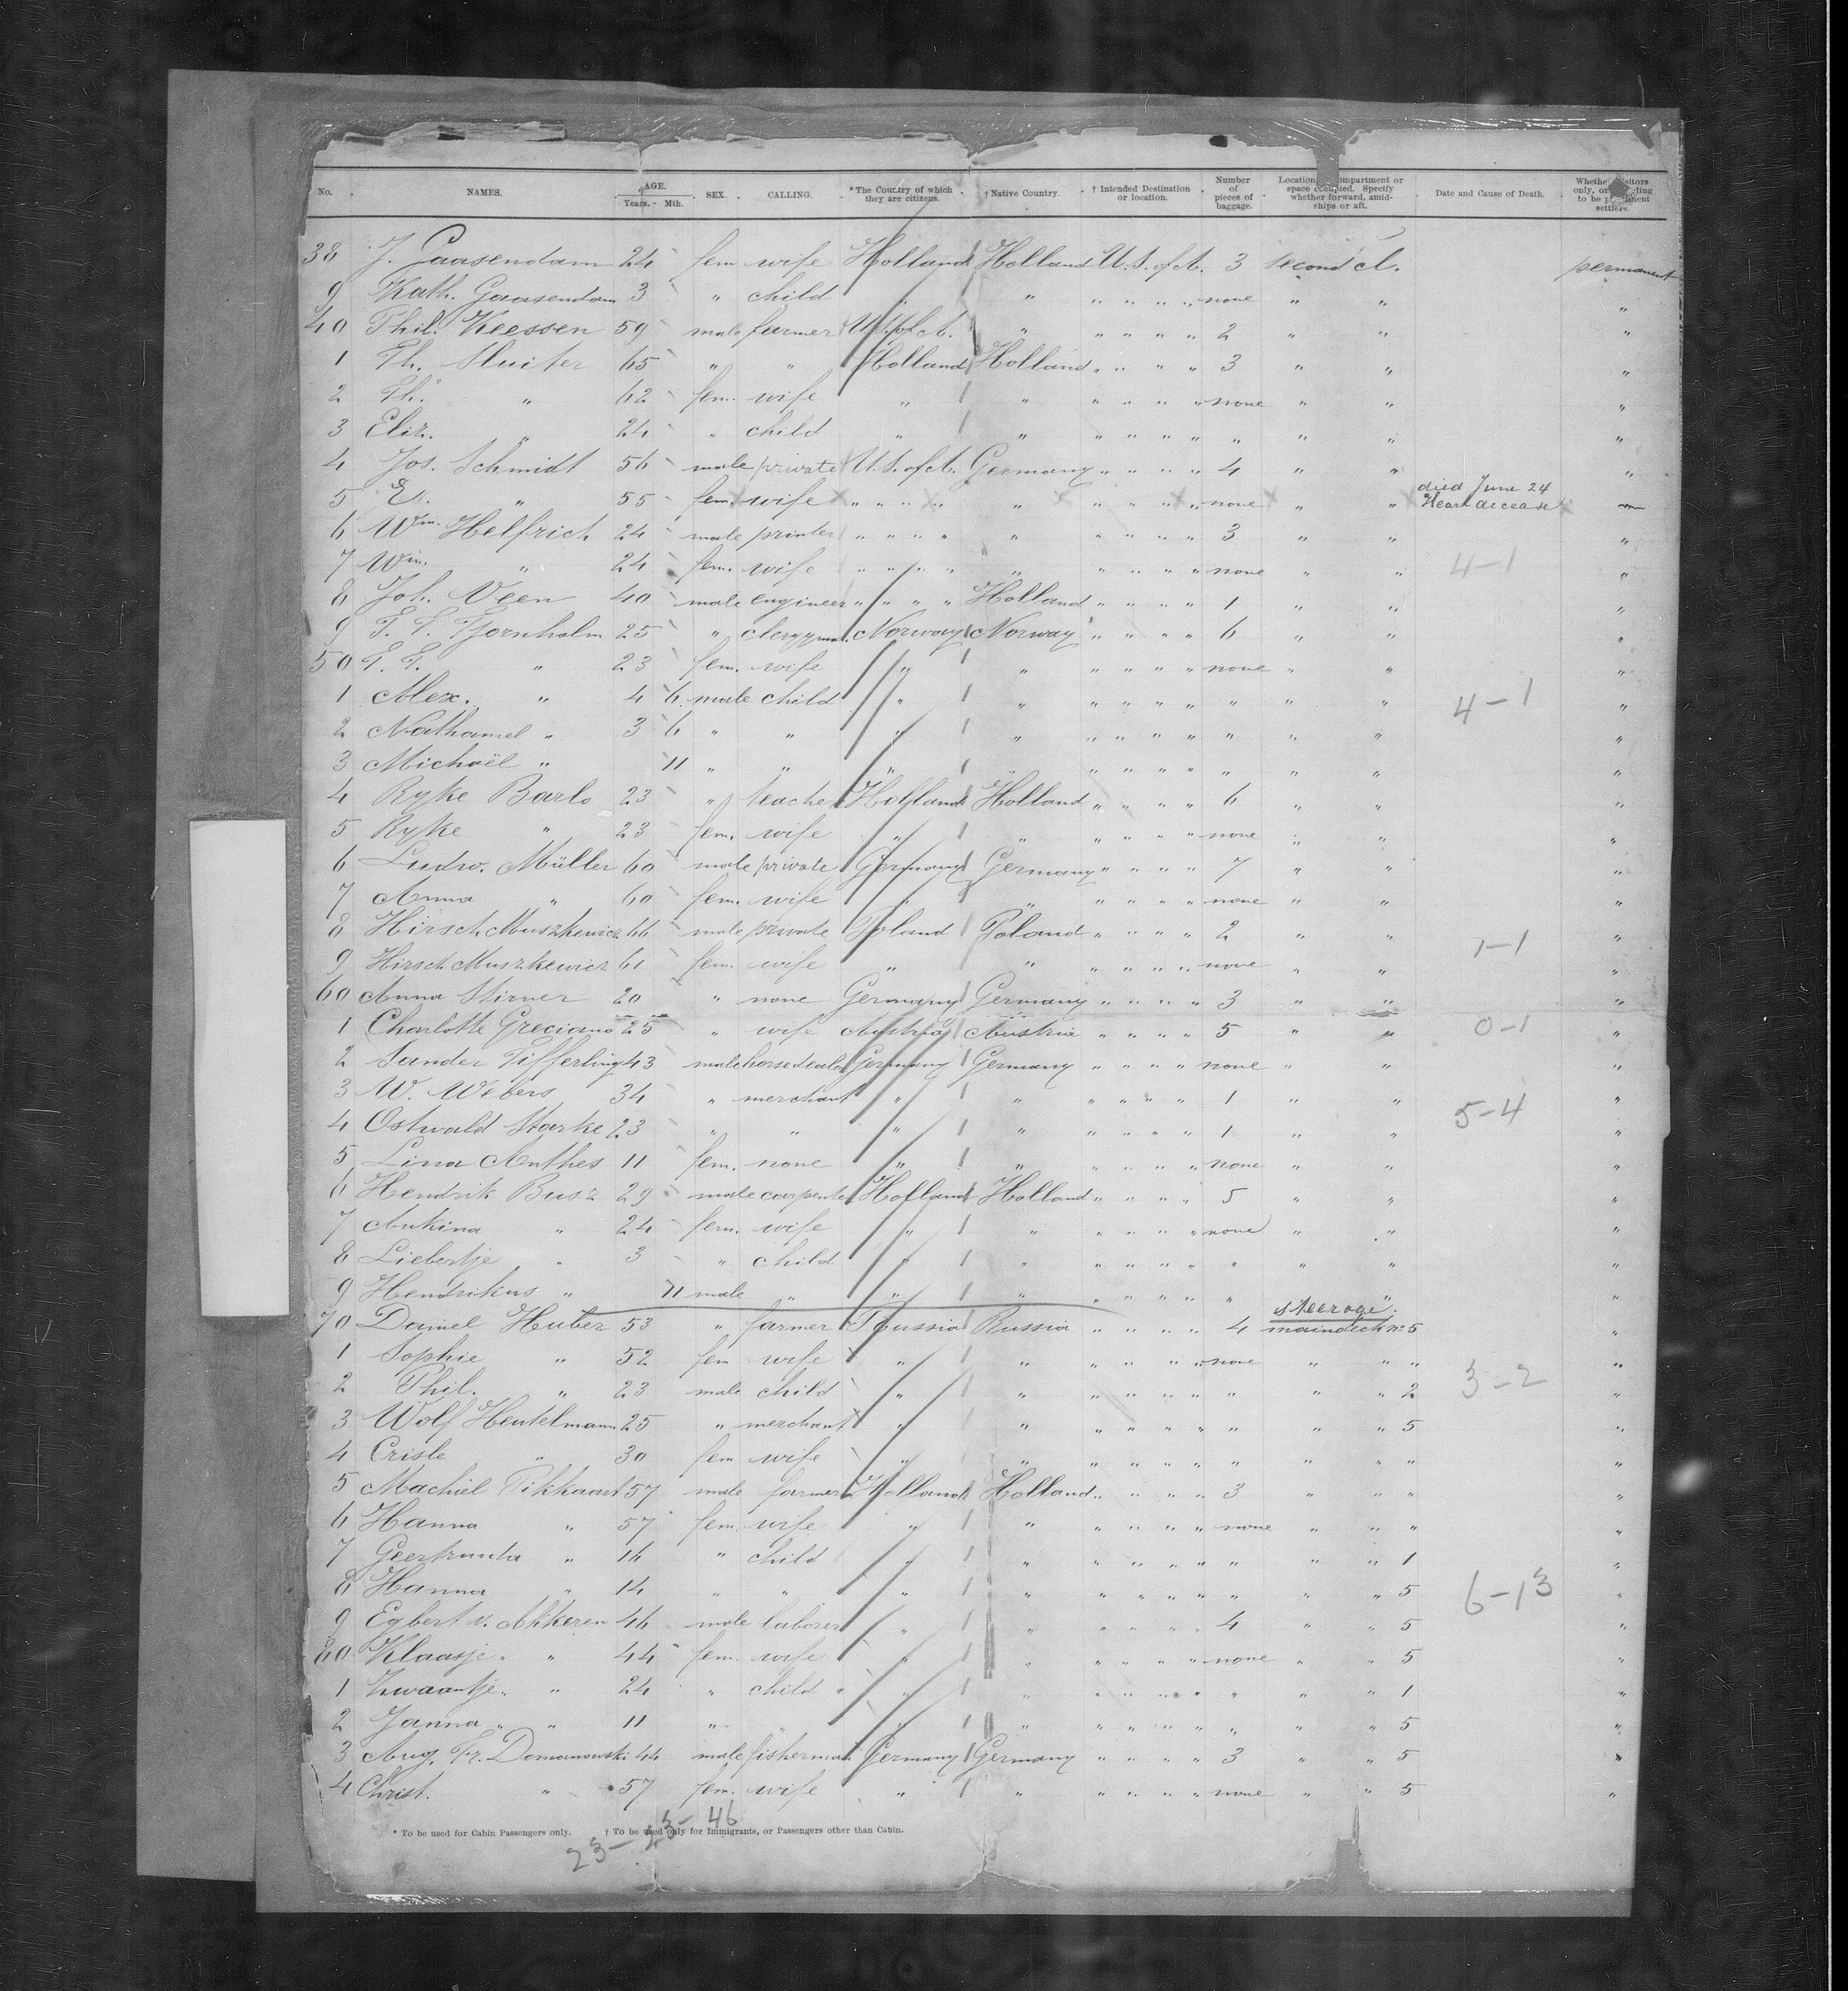 No. NAMES. AGE. Years. Mth. SEX. CALLING. *The Country of which they are citizens. †Native Country. †Intended Destination or location. Number of pieces of baggage. Location compartment or space occupied. Specify whether forward, amidships or aft. Date and Cause of Death. Whether visitors only, or to be permanent settlers.
38 J. Gaasendam 24 fem wife Holland Holland U.S. of A. 3 second cl. permanent
9 Kath. Gaasendam 3 " child " " " " " " none " " "
40 Phil. Keessen 59 male farmer U.S. of A. " " " " " 2 " " "
1 Th. Sluiter 65 " " Holland Holland " " " " 3 " " "
2 Th. " 62 fem. wife " " " " " " none " " "
3 Eliz. " 24 " child " " " " " " " " " "
4 Jos. Schmidt 56 male private U.S. of A. Germany " " " " 4 " " "
5 El. " 55 fem. wife " " " " " " " " " none " " died June 24 Heart decease
6 Wm. Helfrich 24 male printer " " " " " " " " " 3 " " "
7 Wm. " 24 fem. wife " " " " " " " " " none " " 4-1 "
8 Joh. Veen 40 male engineer " " " " Holland " " " " 1 " " "
9 T. T. Tjornholm 25 " clergyman. Norway Norway " " " " 6 " " "
50 T. T. " 23 fem. wife " " " " " " none " " "
1 Alex. " 4 6 male child " " " " " " " " " 4-1 "
2 Nathaniel " 3 6 " " " " " " " " " " " "
3 Michaël " 11 " " " " " " " " " " " "
4 Ryke Barlo 23 " teacher Holland Holland " " " " 6 " " "
5 Ryke " 23 fem. wife " " " " " " none " " "
6 Ludw. Müller 60 male private Germany Germany " " " " 7 " " "
7 Anna " 60 fem. wife " " " " " " none " " "
8 Hirsch Muszkewicz 66 male private Poland Poland " " " " 2 " " "
9 Hirsch Muszkewicz 61 fem. wife " " " " " " none " " 1-1 "
60 Anna Stirner 20 " none Germany Germany " " " " 3 " " "
1 Charlotte Greciano 25 " wife Austria Austria " " " " 5 " " 0-1 "
2 Sander Tifferling 43 male horsedealer Germany Germany " " " " none " " "
3 W. Webers 34 " merchant " " " " " " 1 " " "
4 Ostwald Starke 23 " " " " " " " " 1 " " 5-4 "
5 Lina Anthes 11 fem. none " " " " " " none " " "
6 Hendrik Busz 29 male carpenter Holland Holland " " " " 5 " " "
7 Aukina " 24 fem. wife " " " " " " none " " "
8 Liebertje " 3 " child " " " " " " " " " "
9 Hendrikus " 11 male " " " " " " " " " "
70 Daniel Huber 53 " farmer Russia Russia " " " " 4 steerage. maindeck no 5 "
1 Sophie " 52 fem wife " " " " " " none " " " "
2 Phil. " 23 male child " " " " " " " " " 2 3-2 "
3 Wolf Heutelmann 25 " merchant " " " " " " " " " 5 "
4 Crisle " 30 fem wife " " " " " " " " " " "
5 Machiel Pikkaart 57 male farmer Holland Holland " " " " 3 " " " "
6 Hanna " 57 fem. wife " " " " " " none " " " "
7 Geertrunta " 16 " child " " " " " " " " " 1 "
8 Hanna " 14 " " " " " " " " " " " 5 6-13 "
9 Egbert v. Akkeren 46 male laborer " " " " " " 4 " " 5 "
80 Klaasje " " 44 fem. wife " " " " " " none " " 5 "
1 Zwaantje " " 24 " child " " " " " " " " " 1 "
2 Janna " " 11 " " " " " " " " " " " 5 "
3 Aug. Fr. Domanowski 44 male fisherman Germany Germany " " " " 3 " " 5 "
4 Christ. " 57 fem. wife " " " " " " none " " 5 "
* To be used for Cabin Passengers only. † To be used only for Immigrants, or Passengers other than Cabin.
23-23-46